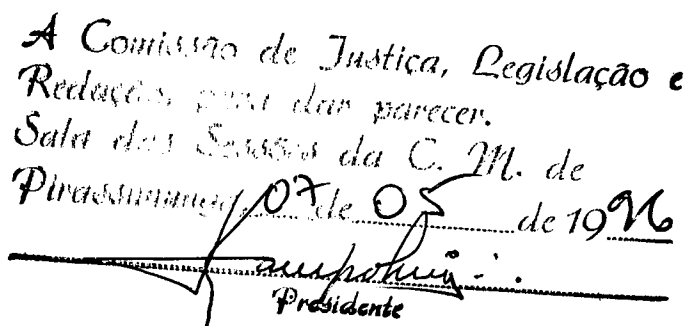 A Comissão de Justiça, Legislação e
Redação, para dar parecer.
Sala das Sessões da C. M. de
Pirassununga, 07 de 05 de 1996
Presidente